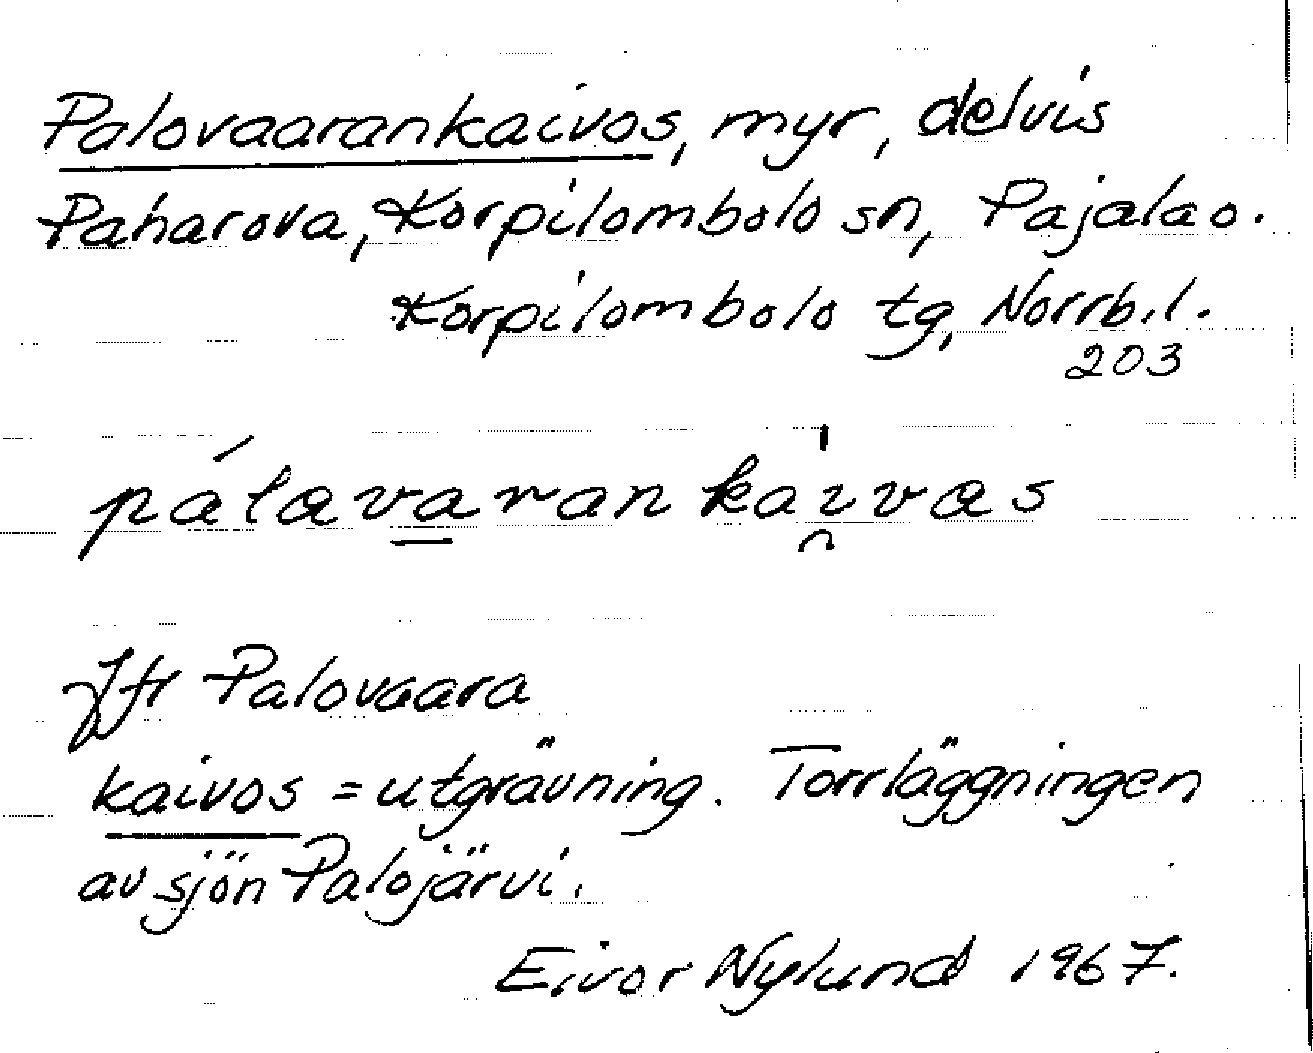 Palovaarankaivos, myr, delvis
Paharova, Korpilombolo sn, Pajala o.
Korpilombolo tg, Norrb.l.
203
pálavaran kaivas
Jfr Palovaara
kaivos = utgrävning. Torrläggningen
av sjön Palojärvi.
Eivor Nylund 1967.